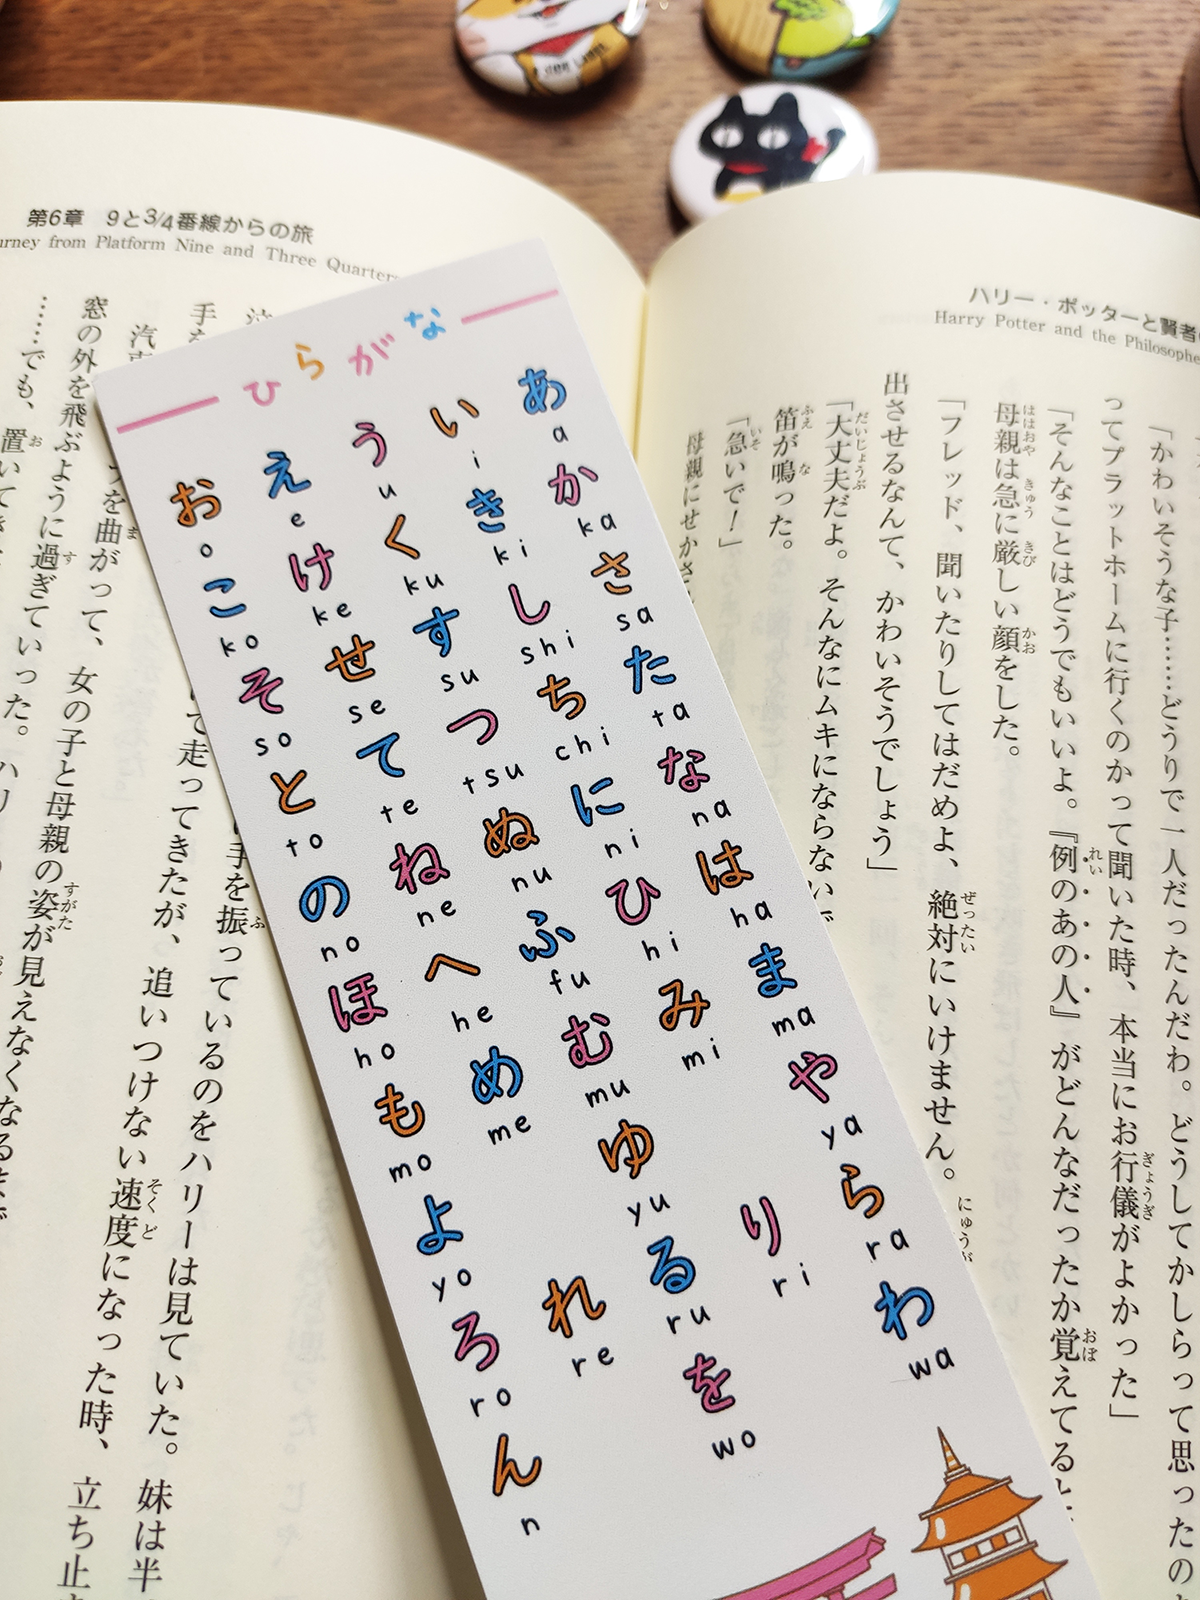 第6章 9と3/4番線からの旅
urney from Platform Nine and Three Quarters
ハリー・ポッターと賢者
Harry Potter and the Philosophe
ひらがな
あ い う え お
a i u e o
か き く け こ
ka ki ku ke ko
さ し す せ そ
sa shi su se so
た ち つ て と
ta chi tsu te to
な に ぬ ね の
na ni nu ne no
は ひ ふ へ ほ
ha hi fu he ho
ま み む め も
ma mi mu me mo
や ゆ よ
ya yu yo
ら り る れ ろ
ra ri ru re ro
わ を ん
wa wo n
「かわいそうな子……どうりで一人だったんだわ。どうしてかしらって思ったのよ
ってプラットホームに行くのかって聞いた時、本当にお行儀がよかった」
「そんなことはどうでもいいよ。『例のあの人』がどんなだったか覚えてると
母親は急に厳しい顔をした。
「フレッド、聞いたりしてはだめよ、絶対にいけません。
出させるなんて、かわいそうでしょう」
「大丈夫だよ。そんなにムキにならないで
笛が鳴った。
「急いで！」
母親にせかさ
手を振っているのをハリーは見ていた。妹は半
て走ってきたが、追いつけない速度になった時、立ち止
を曲がって、女の子と母親の姿が見えなくなるまで
窓の外を飛ぶように過ぎていった。ハリ
……でも、置いてき